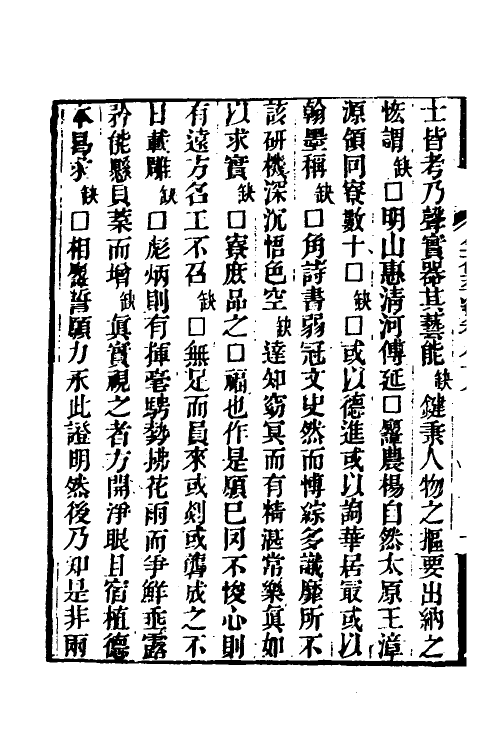 士皆考乃聲實器其藝能缺鍵秉人物之摳要出納之
恢謂缺□明山惠清河傅延□㢲農楊自然太原王漳
源領同寮數十□缺□或以德進或以詞華居最或以
翰墨稱缺□角詩書弱冠文史然而博綜多識靡所不
該研機深沉悟色空缺達知窈冥而有精湛常樂眞如
以求實缺□寮庶品之□福也作是願巳罔不悛心則
有遠方名工不召缺□無足而員來或剡或礱成之不
日載雕缺□彪炳則有揮毫騁勢拂花雨而爭鮮垂露
矜能懸貝葉而增缺眞實視之者方開淨眼且宿植德
本曷求缺□相㢲誓願力永此證明然後乃知是非兩